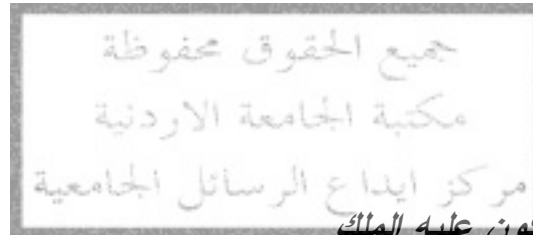 جميع الحقوق محفوظة
مكتبة الجامعة الاردنية
مركز ايداع الرسائل الجامعية
عليه الملك